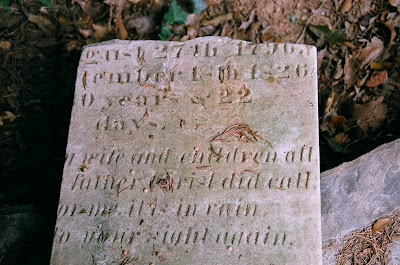 gust 27th 1796
tember 18th 1826
0 years & 22
days.
wife and children all
father Christ did call
for me, it is in vain,
to your sight again.